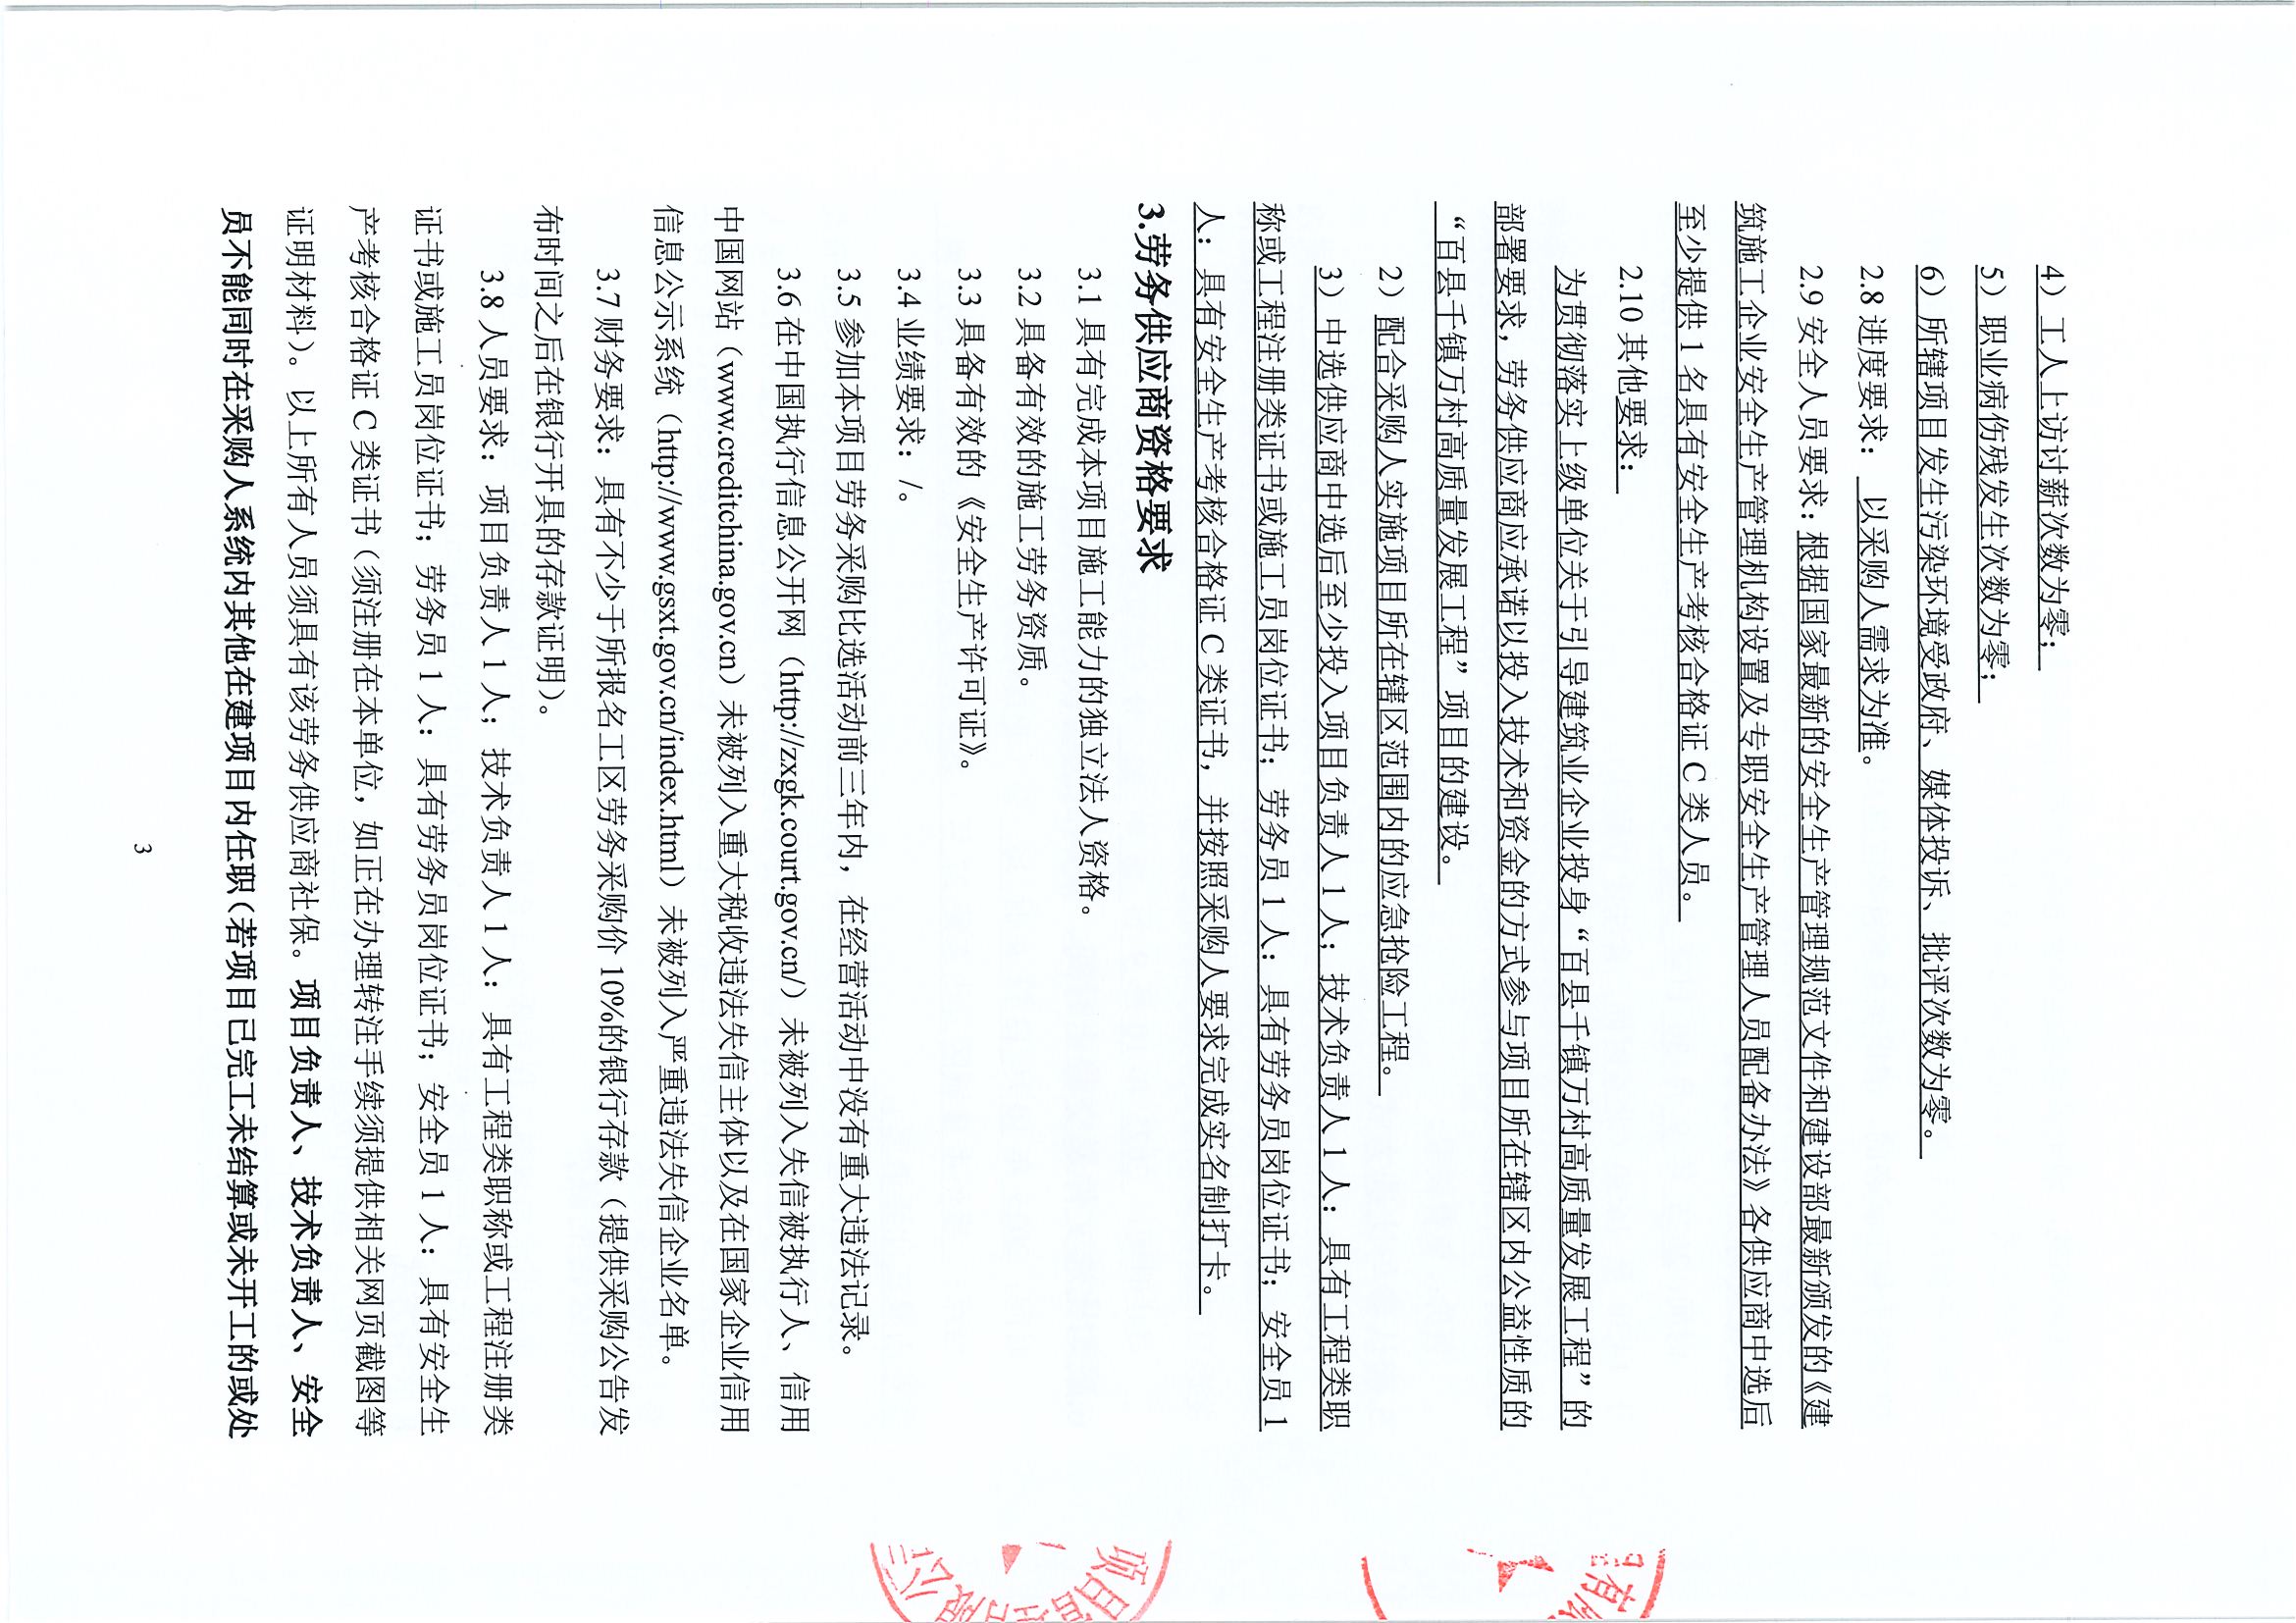 4）工人上访讨薪次数为零；
5）职业病伤残发生次数为零；
6）所辖项目发生污染环境受政府、媒体投诉、批评次数为零。
2.8 进度要求： 以采购人需求为准。
2.9 安全人员要求：根据国家最新的安全生产管理规范文件和建设部最新颁发的《建
筑施工企业安全生产管理机构设置及专职安全生产管理人员配备办法》各供应商中选后
至少提供 1 名具有安全生产考核合格证 C 类人员。
2.10 其他要求：
为贯彻落实上级单位关于引导建筑业企业投身“百县千镇万村高质量发展工程”的
部署要求，劳务供应商应承诺以投入技术和资金的方式参与项目所在辖区内公益性质的
“百县千镇万村高质量发展工程”项目的建设。
2）配合采购人实施项目所在辖区范围内的应急抢险工程。
3）中选供应商中选后至少投入项目负责人 1 人；技术负责人 1 人：具有工程类职
称或工程注册类证书或施工员岗位证书；劳务员 1 人：具有劳务员岗位证书；安全员 1
人：具有安全生产考核合格证 C 类证书，并按照采购人要求完成实名制打卡。
3.劳务供应商资格要求
3.1 具有完成本项目施工能力的独立法人资格。
3.2 具备有效的施工劳务资质。
3.3 具备有效的《安全生产许可证》。
3.4 业绩要求：/。
3.5 参加本项目劳务采购比选活动前三年内，在经营活动中没有重大违法记录。
3.6 在中国执行信息公开网（http://zxgk.court.gov.cn/）未被列入失信被执行人、信用
中国网站（www.creditchina.gov.cn）未被列入重大税收违法失信主体以及在国家企业信用
信息公示系统（http://www.gsxt.gov.cn/index.html）未被列入严重违法失信企业名单。
3.7 财务要求：具有不少于所报名工区劳务采购价 10%的银行存款（提供采购公告发
布时间之后在银行开具的存款证明）。
3.8 人员要求：项目负责人 1 人；技术负责人 1 人：具有工程类职称或工程注册类
证书或施工员岗位证书；劳务员 1 人：具有劳务员岗位证书；安全员 1 人：具有安全生
产考核合格证 C 类证书（须注册在本单位，如正在办理转注手续须提供相关网页截图等
证明材料）。以上所有人员须具有该劳务供应商社保。项目负责人、技术负责人、安全
员不能同时在采购人系统内其他在建项目内任职（若项目已完工未结算或未开工的或处
3